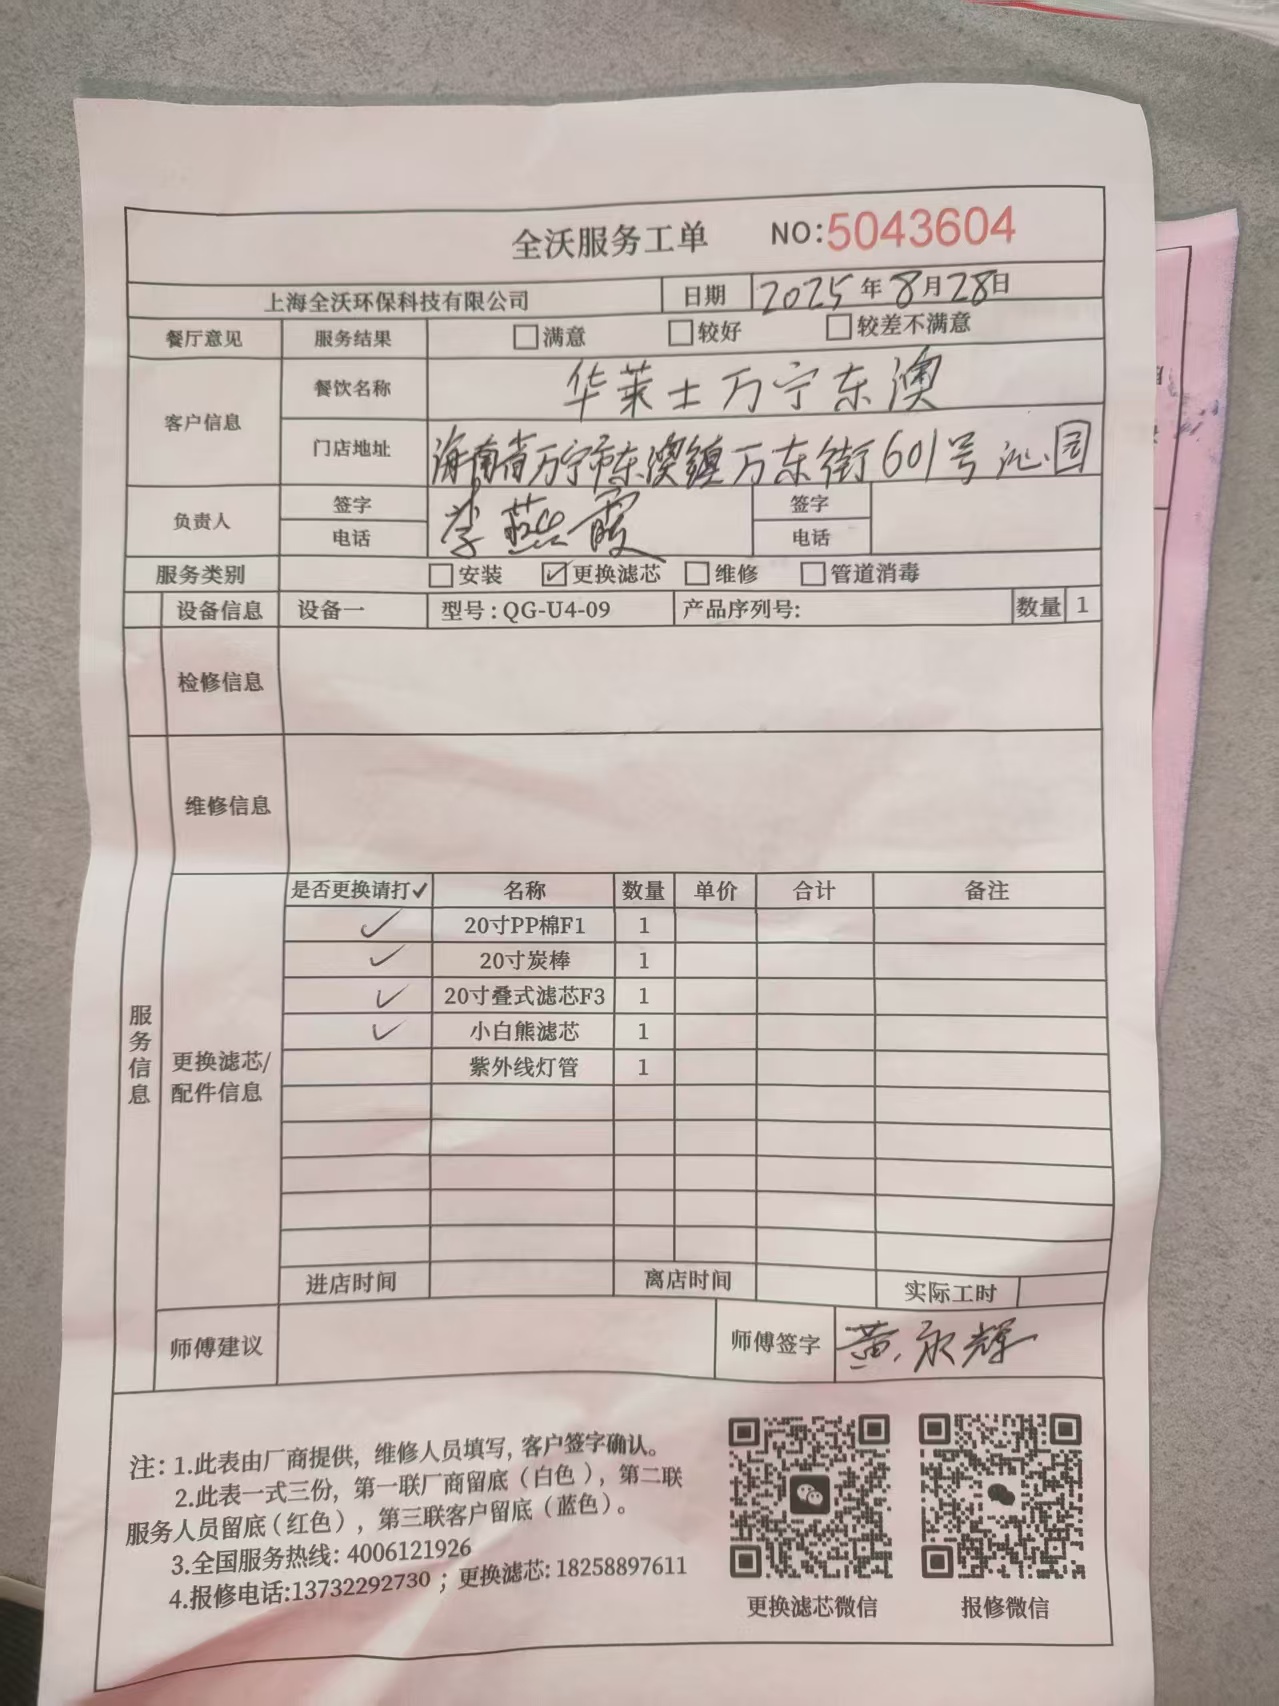 全沃服务工单 NO:5043604
上海全沃环保科技有限公司 日期 2025年8月28日
餐厅意见 服务结果 □满意 □较好 □较差不满意
客户信息 餐饮名称 华莱士万宁东澳
门店地址 海南省万宁市东澳镇万东街601号沁园
负责人 签字 李燕霞 签字
电话 电话
服务类别 □安装 ☑更换滤芯 □维修 □管道消毒
设备信息 设备一 型号:QG-U4-09 产品序列号: 数量 1
检修信息
维修信息
服务信息
更换滤芯/
配件信息
是否更换请打✓ 名称 数量 单价 合计 备注
✓ 20寸PP棉F1 1
✓ 20寸炭棒 1
✓ 20寸叠式滤芯F3 1
✓ 小白熊滤芯 1
紫外线灯管 1
进店时间 离店时间 实际工时
师傅建议 师傅签字 黄永辉
注:1.此表由厂商提供，维修人员填写,客户签字确认。
2.此表一式三份，第一联厂商留底（白色），第二联
服务人员留底（红色），第三联客户留底（蓝色）。
3.全国服务热线: 4006121926
4.报修电话:13732292730 ；更换滤芯: 18258897611
更换滤芯微信 报修微信